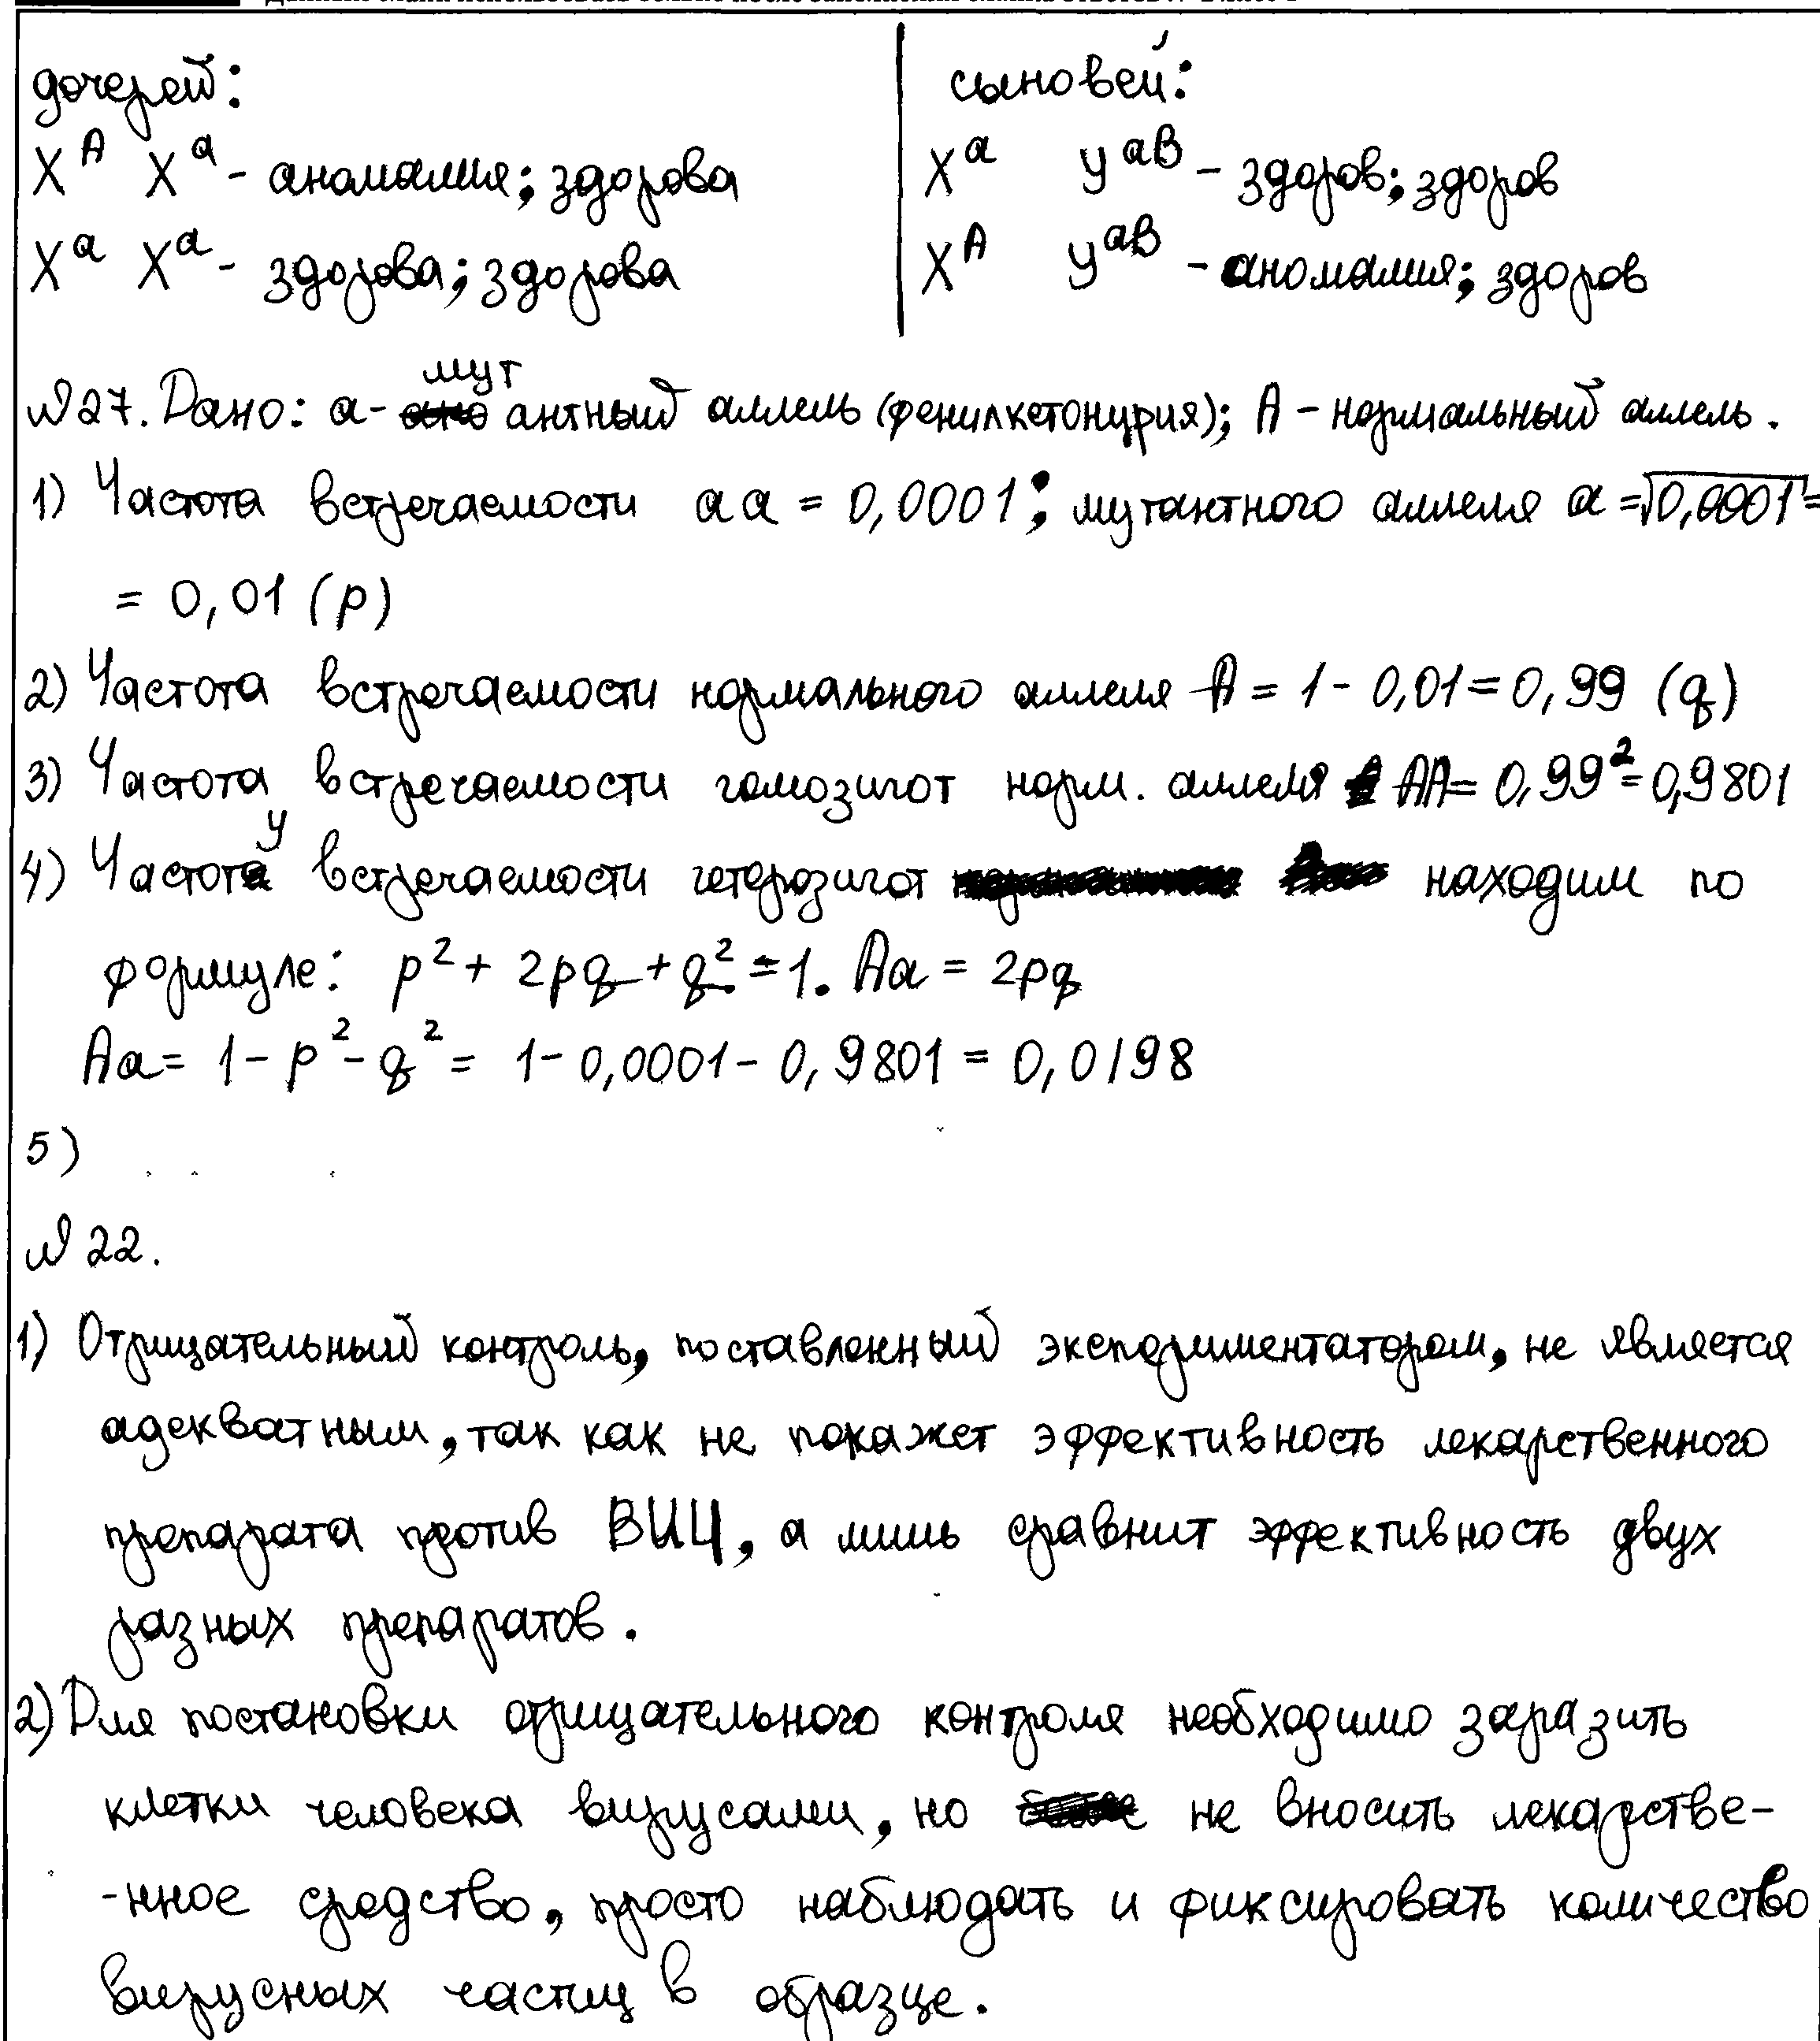 дочерей:
X^A X^a - аномалия; здорова
X^a X^a - здорова; здорова
сыновей:
X^a Y^aB - здоров; здоров
X^A Y^aB - аномалия; здоров
№27. Дано: а - мутантный аллель (фенилкетонурия); А - нормальный аллель.
1) Частота встречаемости аа = 0,0001; мутантного аллеля а = √0,0001 =
= 0,01 (p)
2) Частота встречаемости нормального аллеля А = 1 - 0,01 = 0,99 (q)
3) Частота встречаемости гомозигот норм. аллеля АА = 0,99² = 0,9801
4) Частоту встречаемости гетерозигот находим по
формуле: p² + 2pq + q² = 1. Аа = 2pq
Аа = 1 - p² - q² = 1 - 0,0001 - 0,9801 = 0,0198
5)
№22.
1) Отрицательный контроль, поставленный экспериментатором, не является
адекватным, так как не покажет эффективность лекарственного
препарата против ВИЧ, а лишь сравнит эффективность двух
разных препаратов.
2) Для постановки отрицательного контроля необходимо заразить
клетки человека вирусами, но не вносить лекарстве-
-нное средство, просто наблюдать и фиксировать количество
вирусных частиц в образце.